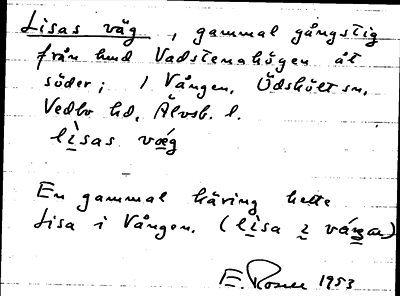 Lisas väg, gammal gångstig
från Vadstenahögen åt
söder; i Vången, Ödskölt sn,
Vedbo hd, Älvsb. l.
lìsas væ̀g
En gammal käring hette
Lisa i Vången. (lìsa i
E. 1953